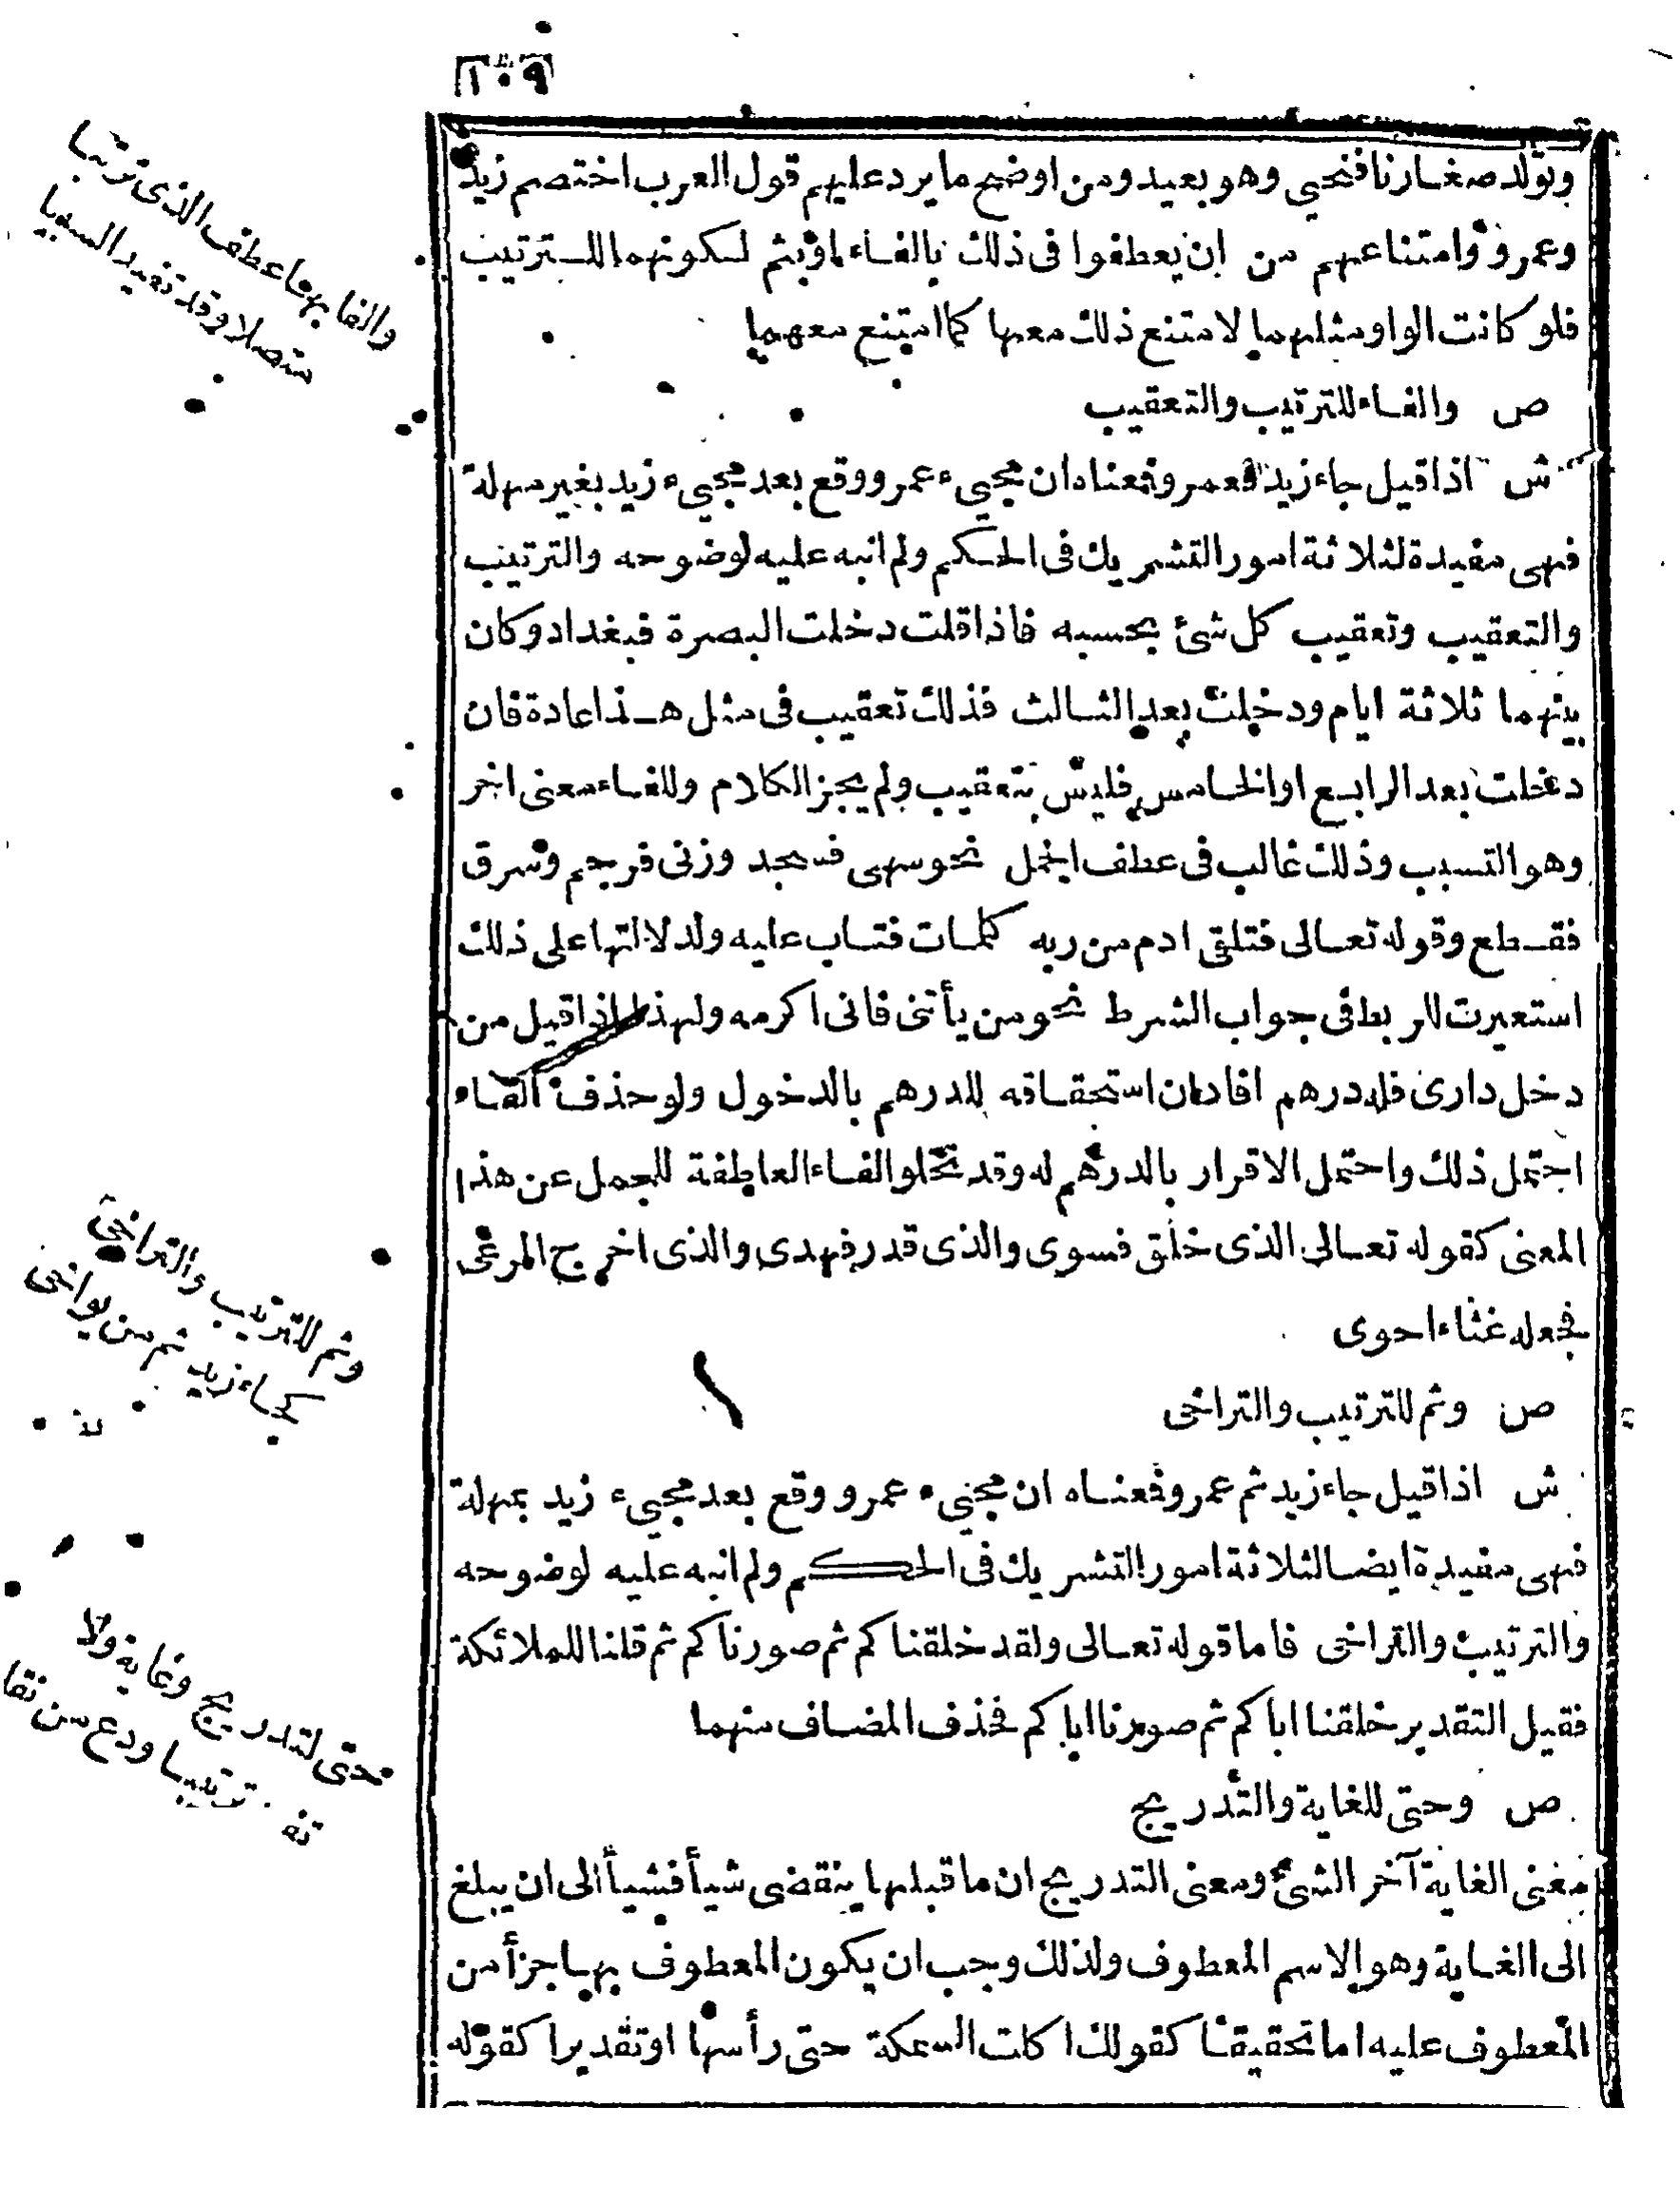 ١٠٩
وتولد صغارنا فنحيي وهو بعيد ومن اوضح ما يرد عليهم قول العرب اختصم زيد
وعمرو وامتناعهم من ان يعطفوا فى ذلك بالفاء او بثم لكونهما للترتيب
فلو كانت الواو مثلهما لامتنع ذلك معها كما امتنع معهما
ص والفاء للترتيب والتعقيب
ش اذا قيل جاء زيد فعمرو فمعناه ان مجيء عمرو وقع بعد مجيء زيد بغير مهلة
فهى مفيدة لثلاثة امور التشريك فى الحكم ولم انبه عليه لوضوحه والترتيب
والتعقيب وتعقيب كل شئ بحسبه فاذا قلت دخلت البصرة فبغداد وكان
بينهما ثلاثة ايام ودخلت بعد الثالث فذلك تعقيب فى مثل هذا عادة فان
دخلت بعد الرابع او الخامس فليس بتعقيب ولم يجز الكلام وللفاء معنى اخر
وهو التسبب وذلك غالب فى عطف الجمل نحو سهى فسجد وزنى فرجم وسرق
فقطع وقوله تعالى فتلقى ادم من ربه كلمات فتاب عليه ولدلالتها على ذلك
استعيرت للربط فى جواب الشرط نحو من يأتنى فانى اكرمه ولهذا اذا قيل من
دخل دارى فله درهم افاد ان استحقاقه للدرهم بالدخول ولو حذف الفاء
احتمل ذلك واحتمل الاقرار بالدرهم له وقد تخلو الفاء العاطفة للجمل عن هذا
المعنى كقوله تعالى الذى خلق فسوى والذى قدر فهدى والذى اخرج المرعى
فجعله غثاء احوى
ص وثم للترتيب والتراخى
ش اذا قيل جاء زيد ثم عمرو فمعناه ان مجيء عمرو وقع بعد مجيء زيد بمهلة
فهى مفيدة ايضا لثلاثة امور التشريك فى الحكم ولم انبه عليه لوضوحه
والترتيب والتراخى فاما قوله تعالى ولقد خلقناكم ثم صورناكم ثم قلنا للملائكة
فقيل التقدير خلقنا اباكم ثم صورنا اباكم فحذف المضاف منهما
ص وحتى للغاية والتدريج
معنى الغاية آخر الشئ ومعنى التدريج ان ما قبلها ينقضى شيأ فشيأ الى ان يبلغ
الى الغاية وهو الاسم المعطوف ولذلك وجب ان يكون المعطوف بها جزأ من
المعطوف عليه اما تحقيقا كقولك اكلت السمكة حتى رأسها او تقديرا كقوله
والفا بها عطف الذى ترتبا
متصلا وقد تفيد السببا
وثم للترتيب والتراخى
كجاء زيد ثم من يواخى
حتى لتدريج وغاية ولا
ترتيبا ودع من نقا